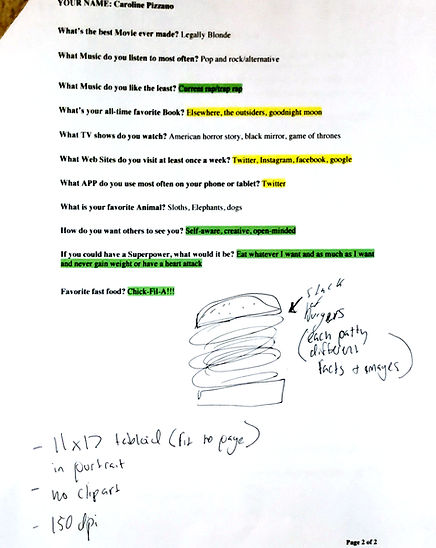 YOUR NAME: Caroline Pizzano
What's the best Movie ever made? Legally Blonde
What Music do you listen to most often? Pop and rock/alternative
What Music do you like the least? Current rap/trap rap
What's your all-time favorite Book? Elsewhere, the outsiders, goodnight moon
What TV shows do you watch? American horror story, black mirror, game of thrones
What Web Sites do you visit at least once a week? Twitter, Instagram, facebook, google
What APP do you use most often on your phone or tablet? Twitter
What is your favorite Animal? Sloths, Elephants, dogs
How do you want others to see you? Self-aware, creative, open-minded
If you could have a Superpower, what would it be? Eat whatever I want and as much as I want
and never gain weight or have a heart attack
Favorite fast food? Chick-Fil-A!!!
stack
of
burgers
(each patty
different
facts + images)
- 11x17 tabloid (fit to page)
in portrait
- no clipart
- 150 dpi
Page 2 of 2